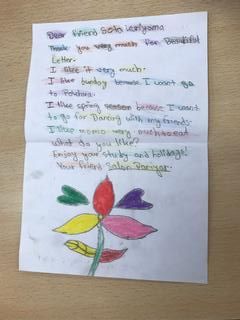 Dear friend Soto Kariyama
Thank you very much for Beautiful
Letter.
I like it very much.
I like Sunday because I want go
to Pokhara.
I like spring season because I want
to go for Dancing with my friends.
I like momo very much to eat
what do you like?
Enjoy your study and holidays!
Your friend Salon Pariyar.